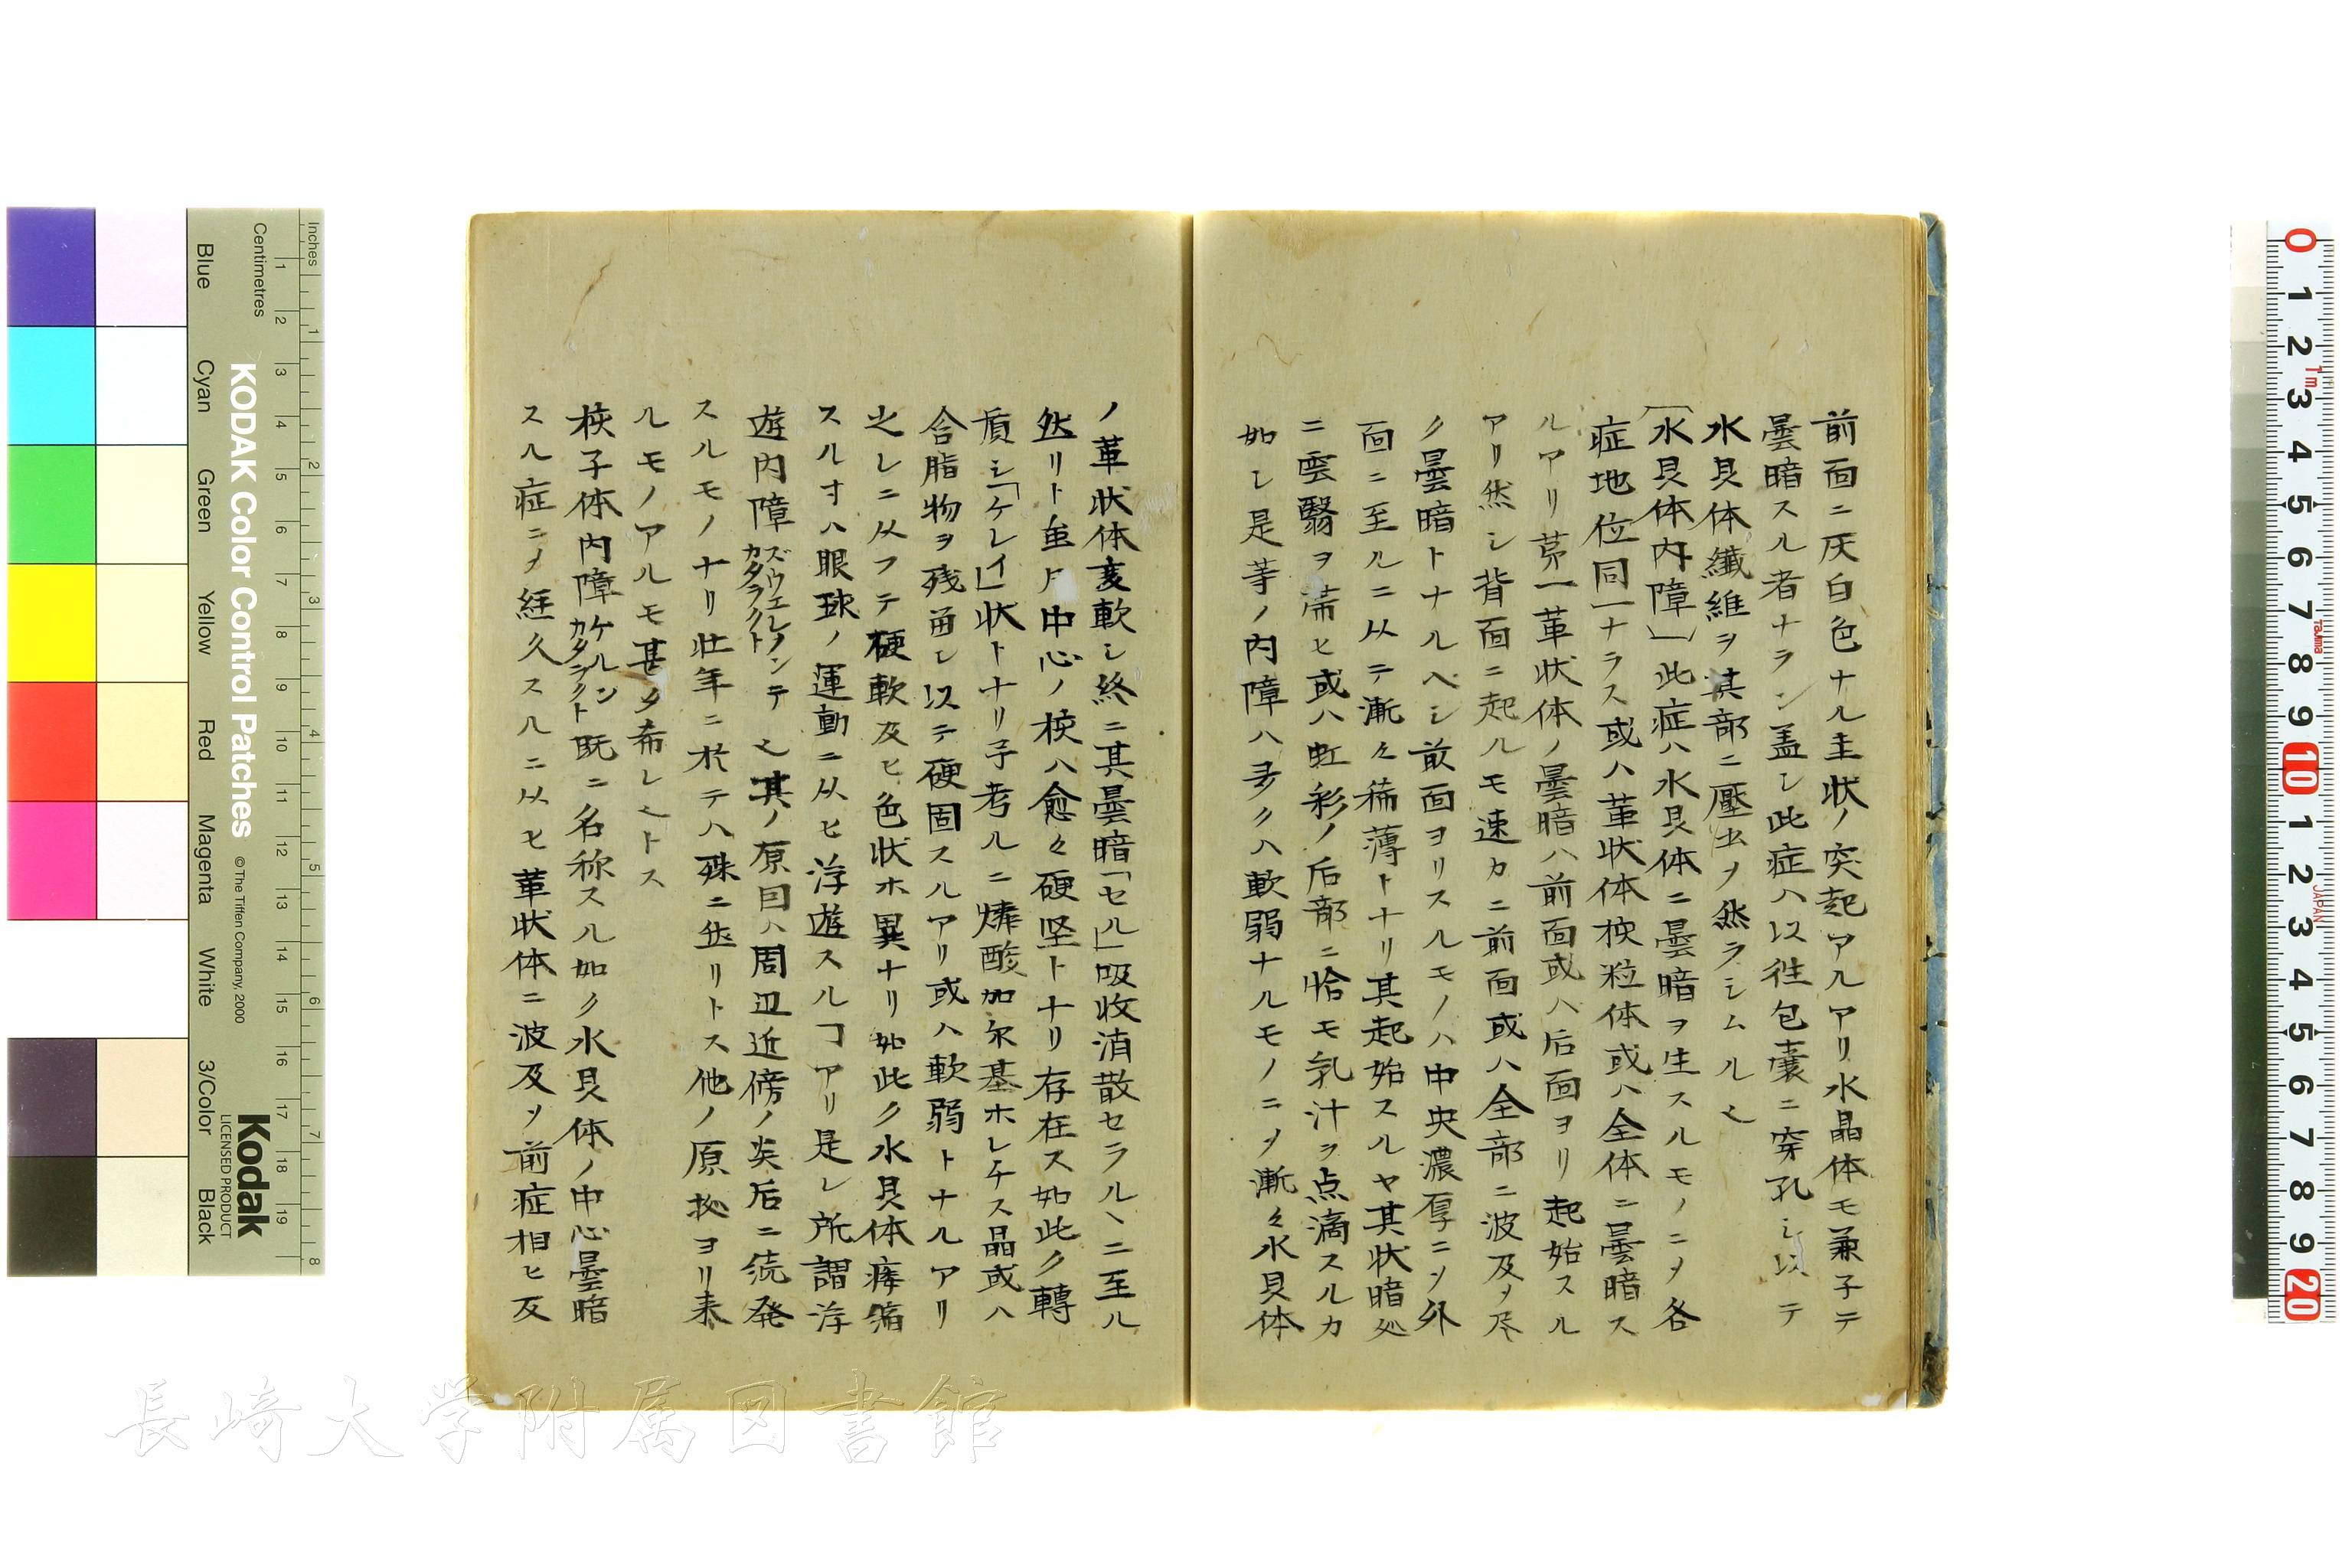 前面ニ灰白色ナル圭状ノ突起アルアリ水晶体モ兼子テ
曇暗スル者ナラン盖シ此症ハ以徃包嚢ニ穿孔シ以テ
水貝体纎維ヲ其部ニ壓出ソ然ラシムル也
（水貝体内障」）此症ハ水貝体ニ曇暗ヲ生スルモノニソ各
症地位同一ナラス或ハ革状体核粒体或ハ全体ニ曇暗ス
ルアリ苐一革状体ノ曇暗ハ前面或ハ后面ヨリ起始スル
アリ然シ背面ニ起ルモ速カニ前面或ハ全部ニ波及ソ尽
ク曇暗トナルヘシ前面ヨリスルモノハ中央濃厚ニソ外
面ニ至ルニ从テ漸々稀薄トナリ其起始スルヤ其状暗処
ニ雲翳ヲ帯ヒ或ハ虹彩ノ后部ニ恰モ乳汁ヲ点滴スルカ
如シ是等ノ内障ハ多クハ軟弱ナルモノニソ漸々水貝体
ノ革状体変軟シ終ニ其曇暗「セル」吸收消散セラルヽニ至ル
然リト虽𪜈中心ノ核ハ愈々硬坚トナリ存在ス如此ク轉
質シ「ケレイ」状トナリ子考ルニ燐酸加尓基ホレチス晶或ハ
合脂物ヲ残畄シ以テ硬固スルアリ或ハ軟弱トナルアリ
之レニ从フテ硬軟及ヒ色状ホ異ナリ如此ク水貝体痿縮
スルオハ眼球ノ運動ニ从ヒ浮遊スルヿアリ是レ所謂浮
遊内障 ズウエレノンテ カタラクト 也其ノ原因ハ周辺近傍ノ炎后ニ続発
スルモノナリ壮年ニ於テハ殊ニ然リトス他ノ原拠ヨリ来
ルモノアルモ甚タ希レ也トス
核子体内障 ケルン カタラクト 既ニ名称スル如ク水貝体ノ中心曇暗
スル症ニソ經久スルニ从ヒ革状体ニ波及ソ前症相ヒ反
KODAK Color Control Patches
© The Tiffen Company, 2000
Kodak
LICENSED PRODUCT
Inches
Centimetres
Blue
Cyan
Green
Yellow
Red
Magenta
White
3/Color
Black
長崎大学附属図書館